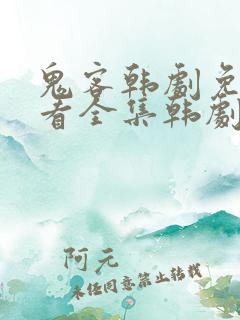 鬼客韩劇免
看全集韩劇
阿元
未经同意禁止转载